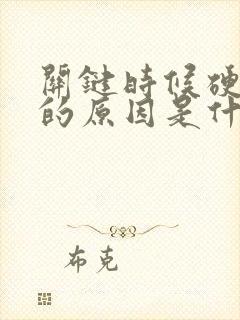 關鍵時候硬
的原因是什
布克